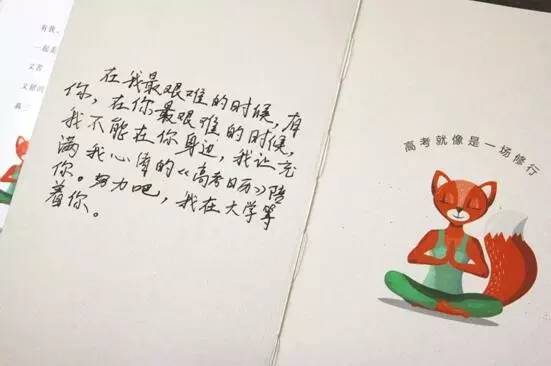 有我、
一起走
又苦
高三
在我最艰难的时候，有
你，在你最艰难的时候，
我不能在你身边，我让充
满我心疼的《高考日历》陪
你。努力吧，我在大学等
着你。
高考就像是一场修行